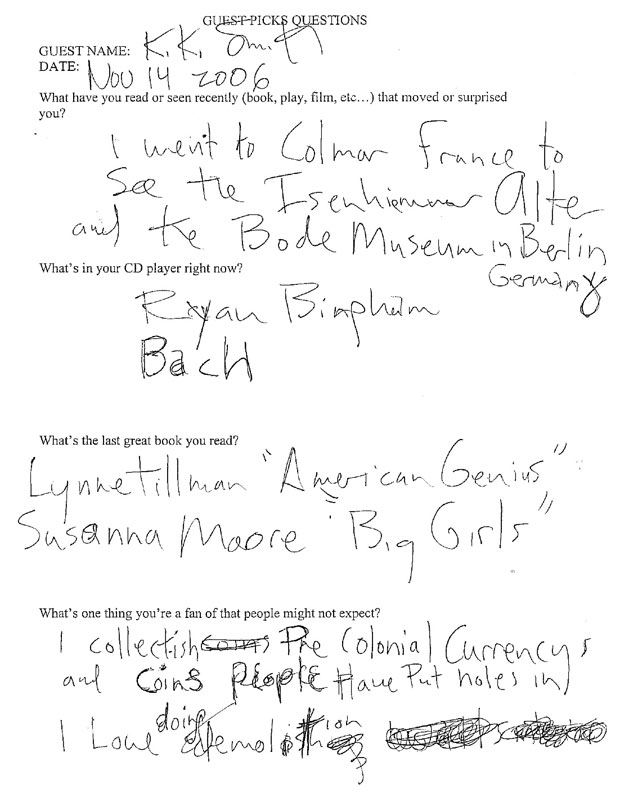 GUEST PICKS QUESTIONS
GUEST NAME: K.K. Smith
DATE: Nov 14 2006
What have you read or seen recently (book, play, film, etc…) that moved or surprised
you?
I went to Colmar France to
See the Isenhiemar Alter
and the Bode Museum in Berlin
Germany
What's in your CD player right now?
Ryan Bingham
Bach
What's the last great book you read?
Lynne Tillman "American Genius"
Susanna Moore "Big Girls"
What's one thing you're a fan of that people might not expect?
I collectish Pre Colonial Currencys
and Coins people Have Put holes in
I Love doing demolition